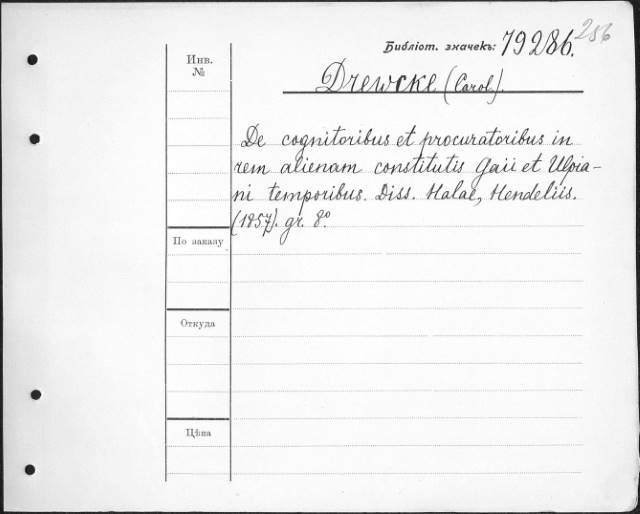 256
Библіот. значекъ: 79286.
Инв. №
Drewcke (Carol.).
De cognitoribus et procuratoribus in
rem alienam constitutis Gaii et Ulpia-
ni temporibus. Diss. Halae, Hendeliis.
(1857). gr. 8°
По заказу
Откуда
Цѣна